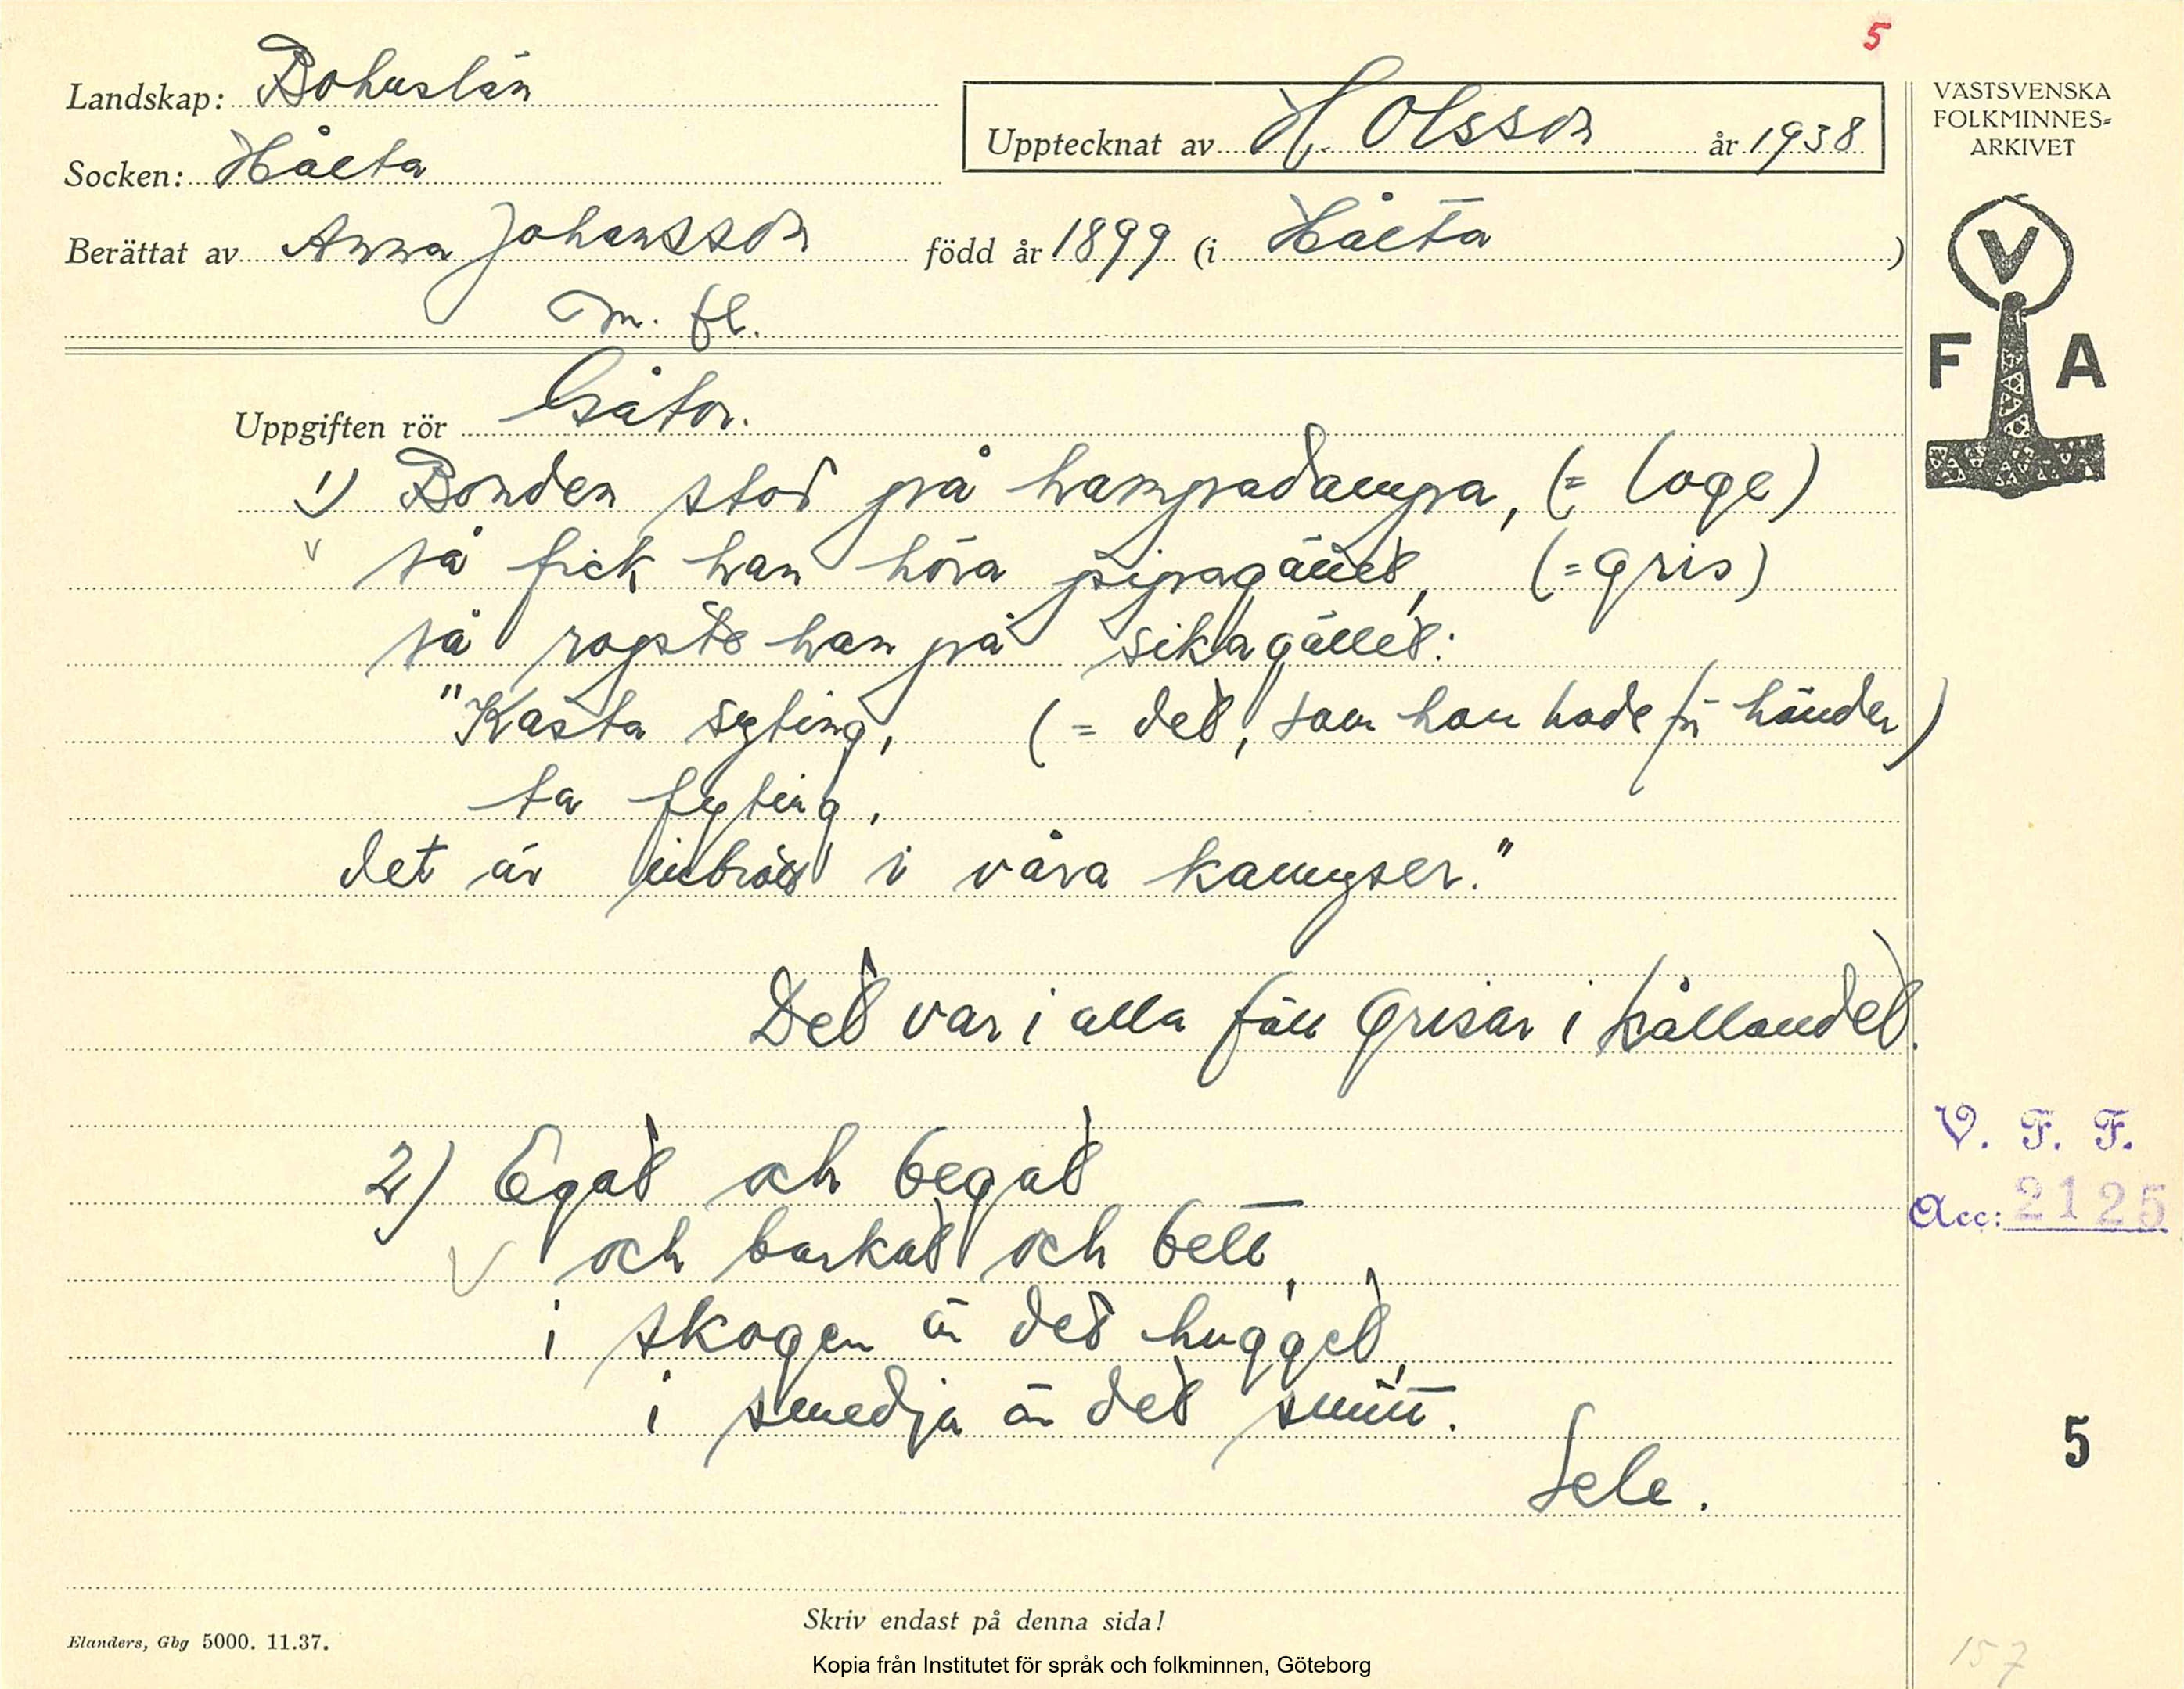 5
Landskap: Bohuslän
Socken: Håeta
Berättat av Anna Johansson född år 1899 (i Håeta )
m. fl.
Upptecknat av H. Olsson år 1938
Uppgiften rör Gåtor.
1) Bonden stod på hampadampa, (= loge)
v så fick han höra pipagället, (= gris)
så ropte han på sikagället:
"Kasta syting, (= det, som han hade för händer)
ta fyting,
det är inbrått i våra kampser."
Det var i alla fall grisar i kållandet.
2) Egat och begat
V och barkat och bett,
i skogen är det hugget,
i smedja är det smitt.
Sele.
Skriv endast på denna sida!
Elanders, Gbg 5000. 11.37.
Kopia från Institutet för språk och folkminnen, Göteborg
VÄSTSVENSKA
FOLKMINNES=
ARKIVET
V
F A
V. F. F.
Acc: 2125
5
157